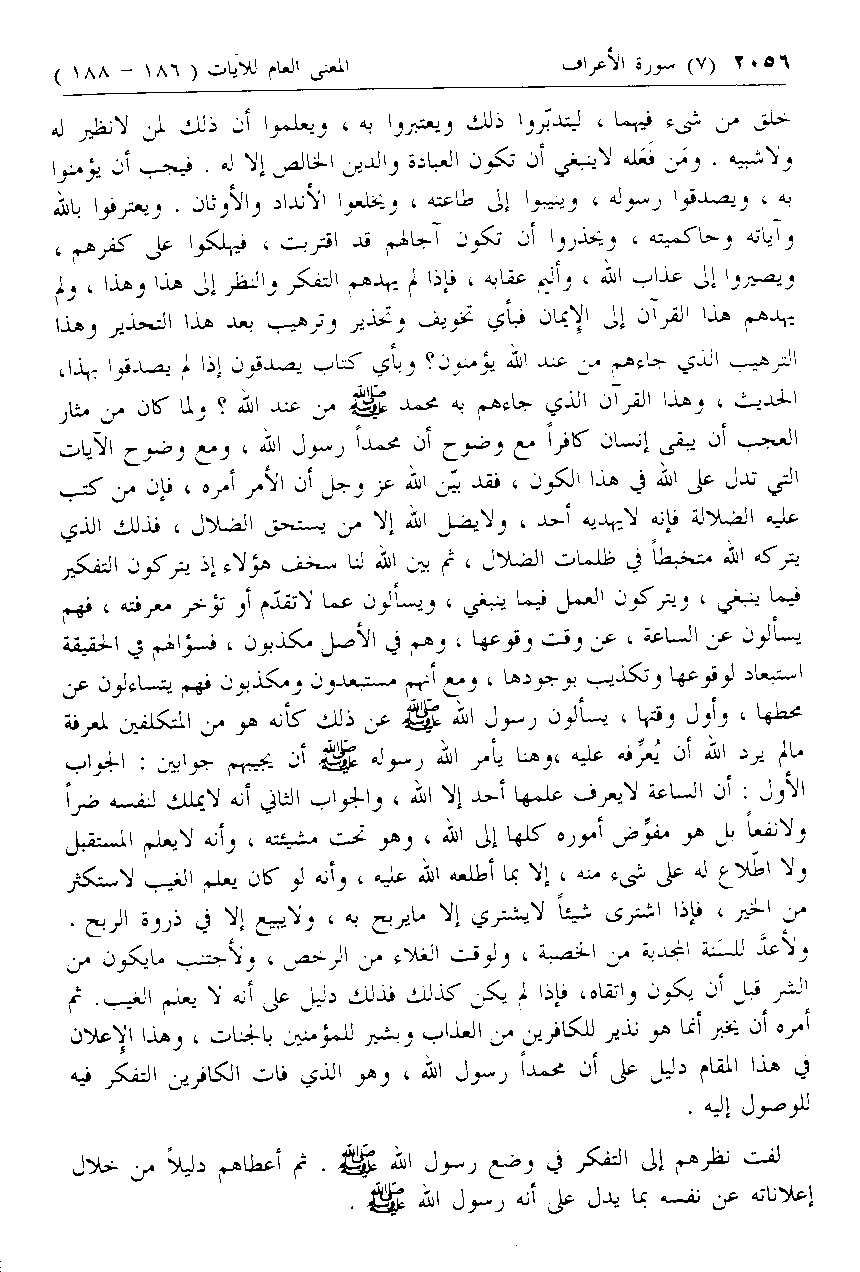 ٢٠٥٦ (٧) سورة الأعراف المعنى العام للآيات ( ١٨٦ – ١٨٨ )
خلق من شيء فيهما ، ليتدبّروا ذلك ويعتبروا به ، ويعلموا أن ذلك لمن لانظير له
ولاشبيه . ومَن فَعَله لاينبغي أن تكون العبادة والدين الخالص إلا له . فيجب أن يؤمنوا
به ، ويصدقوا رسوله ، وينيبوا إلى طاعته ، ويخلعوا الأنداد والأوثان . ويعترفوا بالله
وآياته وحاكميته ، ويحذروا أن تكون آجالهم قد اقتربت ، فيهلكوا على كفرهم ،
ويصيروا إلى عذاب الله ، وأليم عقابه ، فإذا لم يهدهم التفكر والنظر إلى هذا وهذا ، ولم
يهدهم هذا القرآن إلى الإيمان فبأي تخويف وتحذير وترهيب بعد هذا التحذير وهذا
الترهيب الذي جاءهم من عند الله يؤمنون؟ وبأي كتاب يصدقون إذا لم يصدقوا بهذا،
الحديث ، وهذا القرآن الذي جاءهم به محمد ﷺ من عند الله ؟ ولما كان من مثار
العجب أن يبقى إنسان كافراً مع وضوح أن محمداً رسول الله ، ومع وضوح الآيات
التي تدل على الله في هذا الكون ، فقد بيّن الله عز وجل أن الأمر أمره ، فإن من كتب
عليه الضلالة فإنه لايهديه أحد ، ولايضل الله إلا من يستحق الضلال ، فذلك الذي
يتركه الله متخبطاً في ظلمات الضلال ، ثم بين الله لنا سخف هؤلاء إذ يتركون التفكير
فيما ينبغي ، ويتركون العمل فيما ينبغي ، ويسألون عما لاتقدّم أو تؤخر معرفته ، فهم
يسألون عن الساعة ، عن وقت وقوعها ، وهم في الأصل مكذبون ، فسؤالهم في الحقيقة
استبعاد لوقوعها وتكذيب بوجودها ، ومع أنهم مستبعدون ومكذبون فهم يتساءلون عن
محطها ، وأول وقتها ، يسألون رسول الله ﷺ عن ذلك كأنه هو من المتكلفين لمعرفة
مالم يرد الله أن يُعرِّفه عليه ،وهنا يأمر الله رسوله ﷺ أن يجيبهم جوابين : الجواب
الأول : أن الساعة لايعرف علمها أحد إلا الله ، والجواب الثاني أنه لايملك لنفسه ضراً
ولانفعاً بل هو مفوِّض أموره كلها إلى الله ، وهو تحت مشيئته ، وأنه لايعلم المستقبل
ولا اطّلاع له على شيء منه ، إلا بما أطلعه الله عليه ، وأنه لو كان يعلم الغيب لاستكثر
من الخير ، فإذا اشترى شيئاً لايشتري إلا مايربح به ، ولايبيع إلا في ذروة الربح .
ولأعدَّ للسَنة المجدبة من الخصبة ، ولوقت الغلاء من الرخص ، ولأجتنب مايكون من
الشر قبل أن يكون واتقاه، فإذا لم يكن كذلك فذلك دليل على أنه لا يعلم الغيب. ثم
أمره أن يخبر أنما هو نذير للكافرين من العذاب وبشير للمؤمنين بالجنات ، وهذا الإعلان
في هذا المقام دليل على أن محمداً رسول الله ، وهو الذي فات الكافرين التفكر فيه
للوصول إليه .
لفت نظرهم إلى التفكر في وضع رسول الله ﷺ . ثم أعطاهم دليلاً من خلال
إعلاناته عن نفسه بما يدل على أنه رسول الله ﷺ .